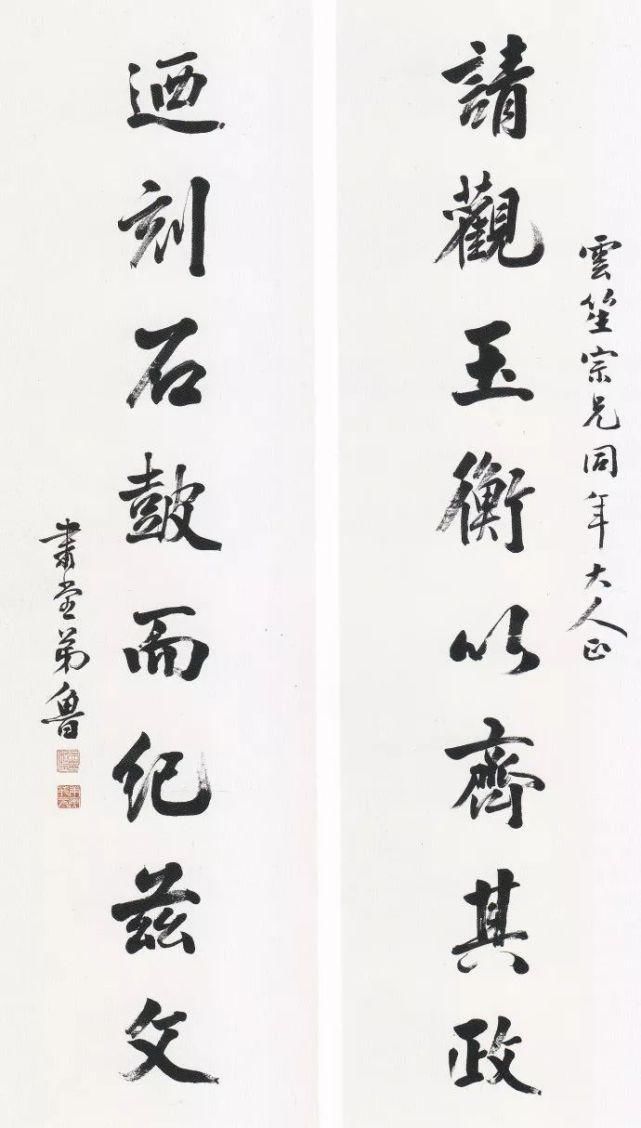 雲笙宗兄同年大人正
請觀玉衡以齊其政
迺刻石皷而紀茲文
堂弟魯